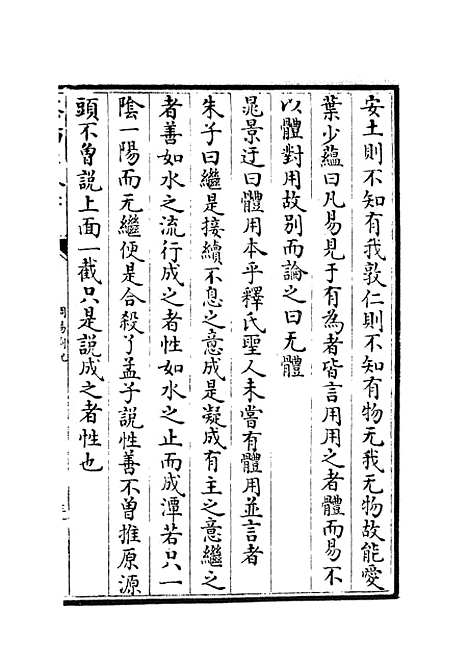 安土則不知有我敦仁則不知有物无我无物故能愛
葉少蘊曰凡易見于有為者皆言用用之者體而易不
以體對用故别而論之曰无體
晁景迂曰體用本乎釋氏聖人未嘗有體用並言者
朱子曰繼是接續不息之意成是凝成有主之意繼之
者善如水之流行成之者性如水之止而成潭若只一
陰一陽而无繼便是合殺了孟子説性善不曽推原源
頭不曽説上面一截只是説成之者性也